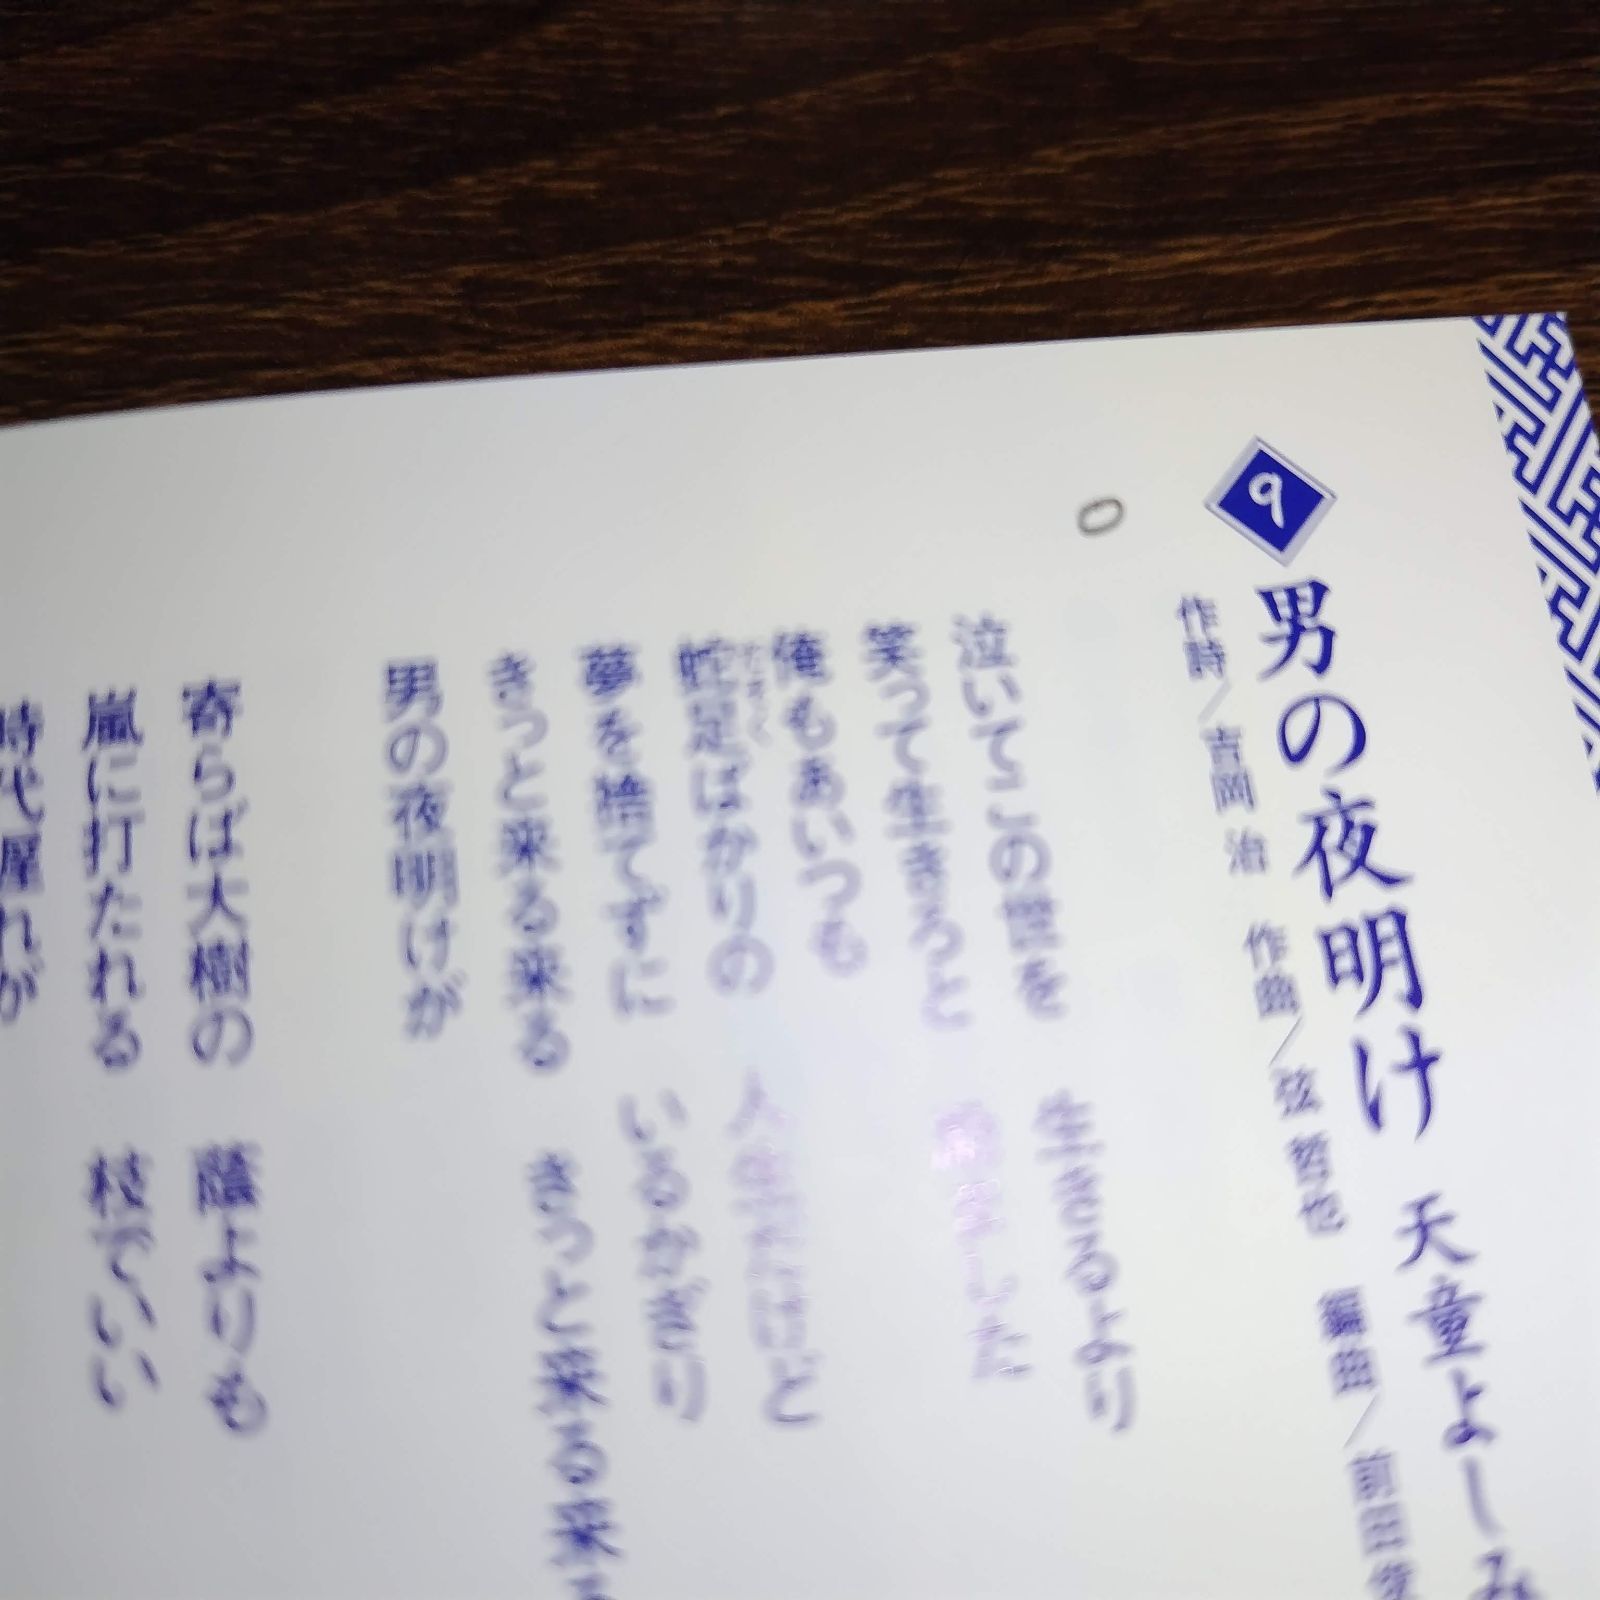 9 男の夜明け 天童よしみ
作詩／吉岡 治 作曲／弦 哲也 編曲／前田
0
泣いてこの世を 生きるより
笑って生きろと
俺もあいつも
蛇足ばかりの 人生だけど
だそく
夢を捨てずに いるかぎり
きっと来る来る きっと来る来る
男の夜明けが
寄らば大樹の 蔭よりも
嵐に打たれる 枝でいい
時代遅れが